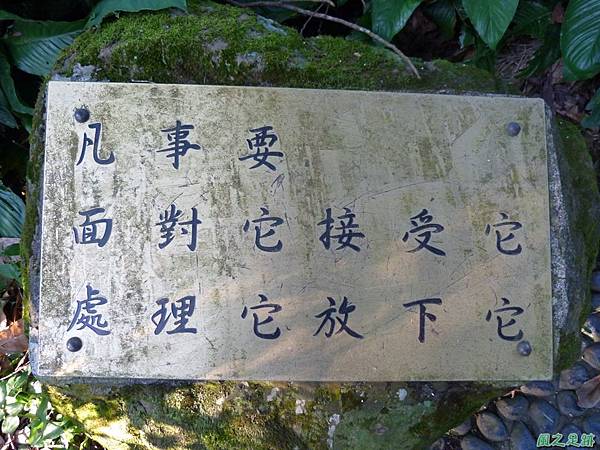 凡事要
面對它接受它
處理它放下它
風之足跡